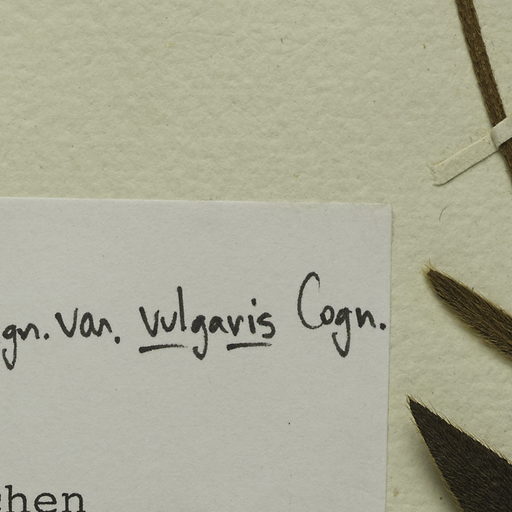 gn. var. vulgaris Cogn.
chen